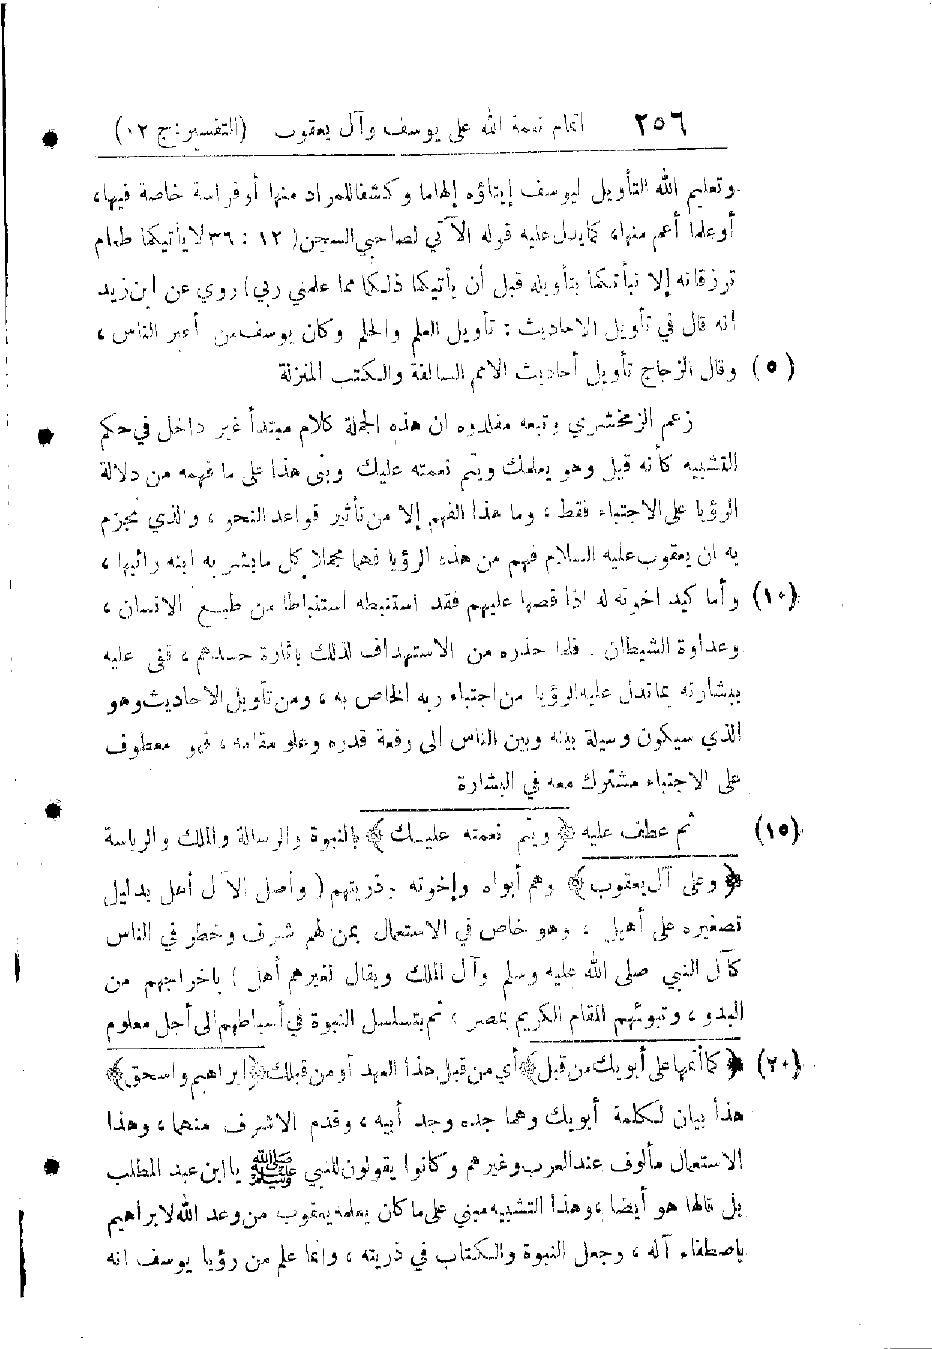 ٢٥٦ اتمام نعمة الله على يوسف وآل يعقوب (التفسير: ج ١٢)
وتعليم الله التأويل ليوسف إيتاؤه إلهاما وكشفا للمراد منها أو فراسة خاصة فيها،
أو علما أعم منها، كما يدل عليه قوله الآتي لصاحبي السجن ( ١٢ : ٣٦ لا يأتيكما طعام
ترزقانه إلا نبأتكما بتأويله قبل أن يأتيكما ذلكما مما علمني ربي) روي عن ابن زيد
انه قال في تأويل الاحاديث : تأويل العلم والحلم وكان يوسف من أعبر الناس ،
(٥) وقال الزجاج تأويل أحاديث الامم السالفة والكتب المنزلة
زعم الزمخشري وتبعه مقلدوه ان هذه الجملة كلام مبتدأ غير داخل في حكم
التشبيه كأنه قيل وهو يعلمك ويتم نعمته عليك وبنى هذا على ما فهمه من دلالة
الرؤيا على الاجتباء فقط ، وما هذا الفهم إلا من تأثير قواعد النحو ، والذي نجزم
به ان يعقوب عليه السلام فهم من هذه الرؤيا فهما مجملا كل ما بشر به ابنه رائيها ،
(١٠) وأما كيد اخوته له اذا قصها عليهم فقد استنبطه استنباطا من طبع الانسان ،
وعداوة الشيطان . فلما حذره من الاستهداف لذلك باثارة حسدهم ، قفى عليه
ببشارته بما تدل عليه الرؤيا من اجتباء ربه الخاص به ، ومن تأويل الاحاديث وهو
الذي سيكون وسيلة بينه وبين الناس الى رفعة قدره وعلو مقامه ، فهو معطوف
على الاجتباء مشترك معه في البشارة
(١٥) ثم عطف عليه ﴿ ويتم نعمته عليك ﴾ بالنبوة والرسالة والملك والرياسة
﴿ وعلى آل يعقوب ﴾ وهم أبواه وإخوته وذريتهم ( وأصل الآل أهل بدليل
تصغيره على أهيل ، وهو خاص في الاستعمال بمن لهم شرف وخطر في الناس
كآل النبي صلى الله عليه وسلم وآل الملك ويقال لغيرهم أهل ) باخراجهم من
البدو ، وتبوئهم المقام الكريم بمصر ، ثم بتسلسل النبوة في أسباطهم الى أجل معلوم
(٢٠) ﴿ كما أتمها على أبويك من قبل ﴾ أي من قبل هذا العهد أو من قبلك ﴿ ابراهيم واسحق ﴾
هذا بيان لكلمة أبويك وهما جده وجد أبيه ، وقدم الاشرف منهما ، وهذا
الاستعمال مألوف عند العرب وغيرهم وكانوا يقولون للنبي ﷺ يا ابن عبد المطلب
بل قالها هو أيضا ، وهذا التشبيه مبني على ما كان يعلمه يعقوب من وعد الله لابراهيم
باصطفاء آله ، وجعل النبوة والكتاب في ذريته ، وانما علم من رؤيا يوسف انه